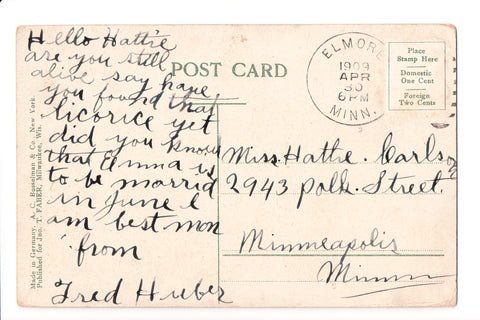 Hello Hattie
are you still
alive say have
you found that
licorice yet
did you know
that Emma is
to be married
in june I
am best mon
from
Fred Huber
POST CARD
ELMORE
1909
APR
30
6PM
MINN.
Place
Stamp Here
Domestic
One Cent
Foreign
Two Cents
Miss. Hattie. Carlson
2943 Polk. Street.
Minneapolis
Minn
Made in Germany. A. C. Bosselman & Co., New York.
Published for Jno. T. FABER, Milwaukee, Wis.